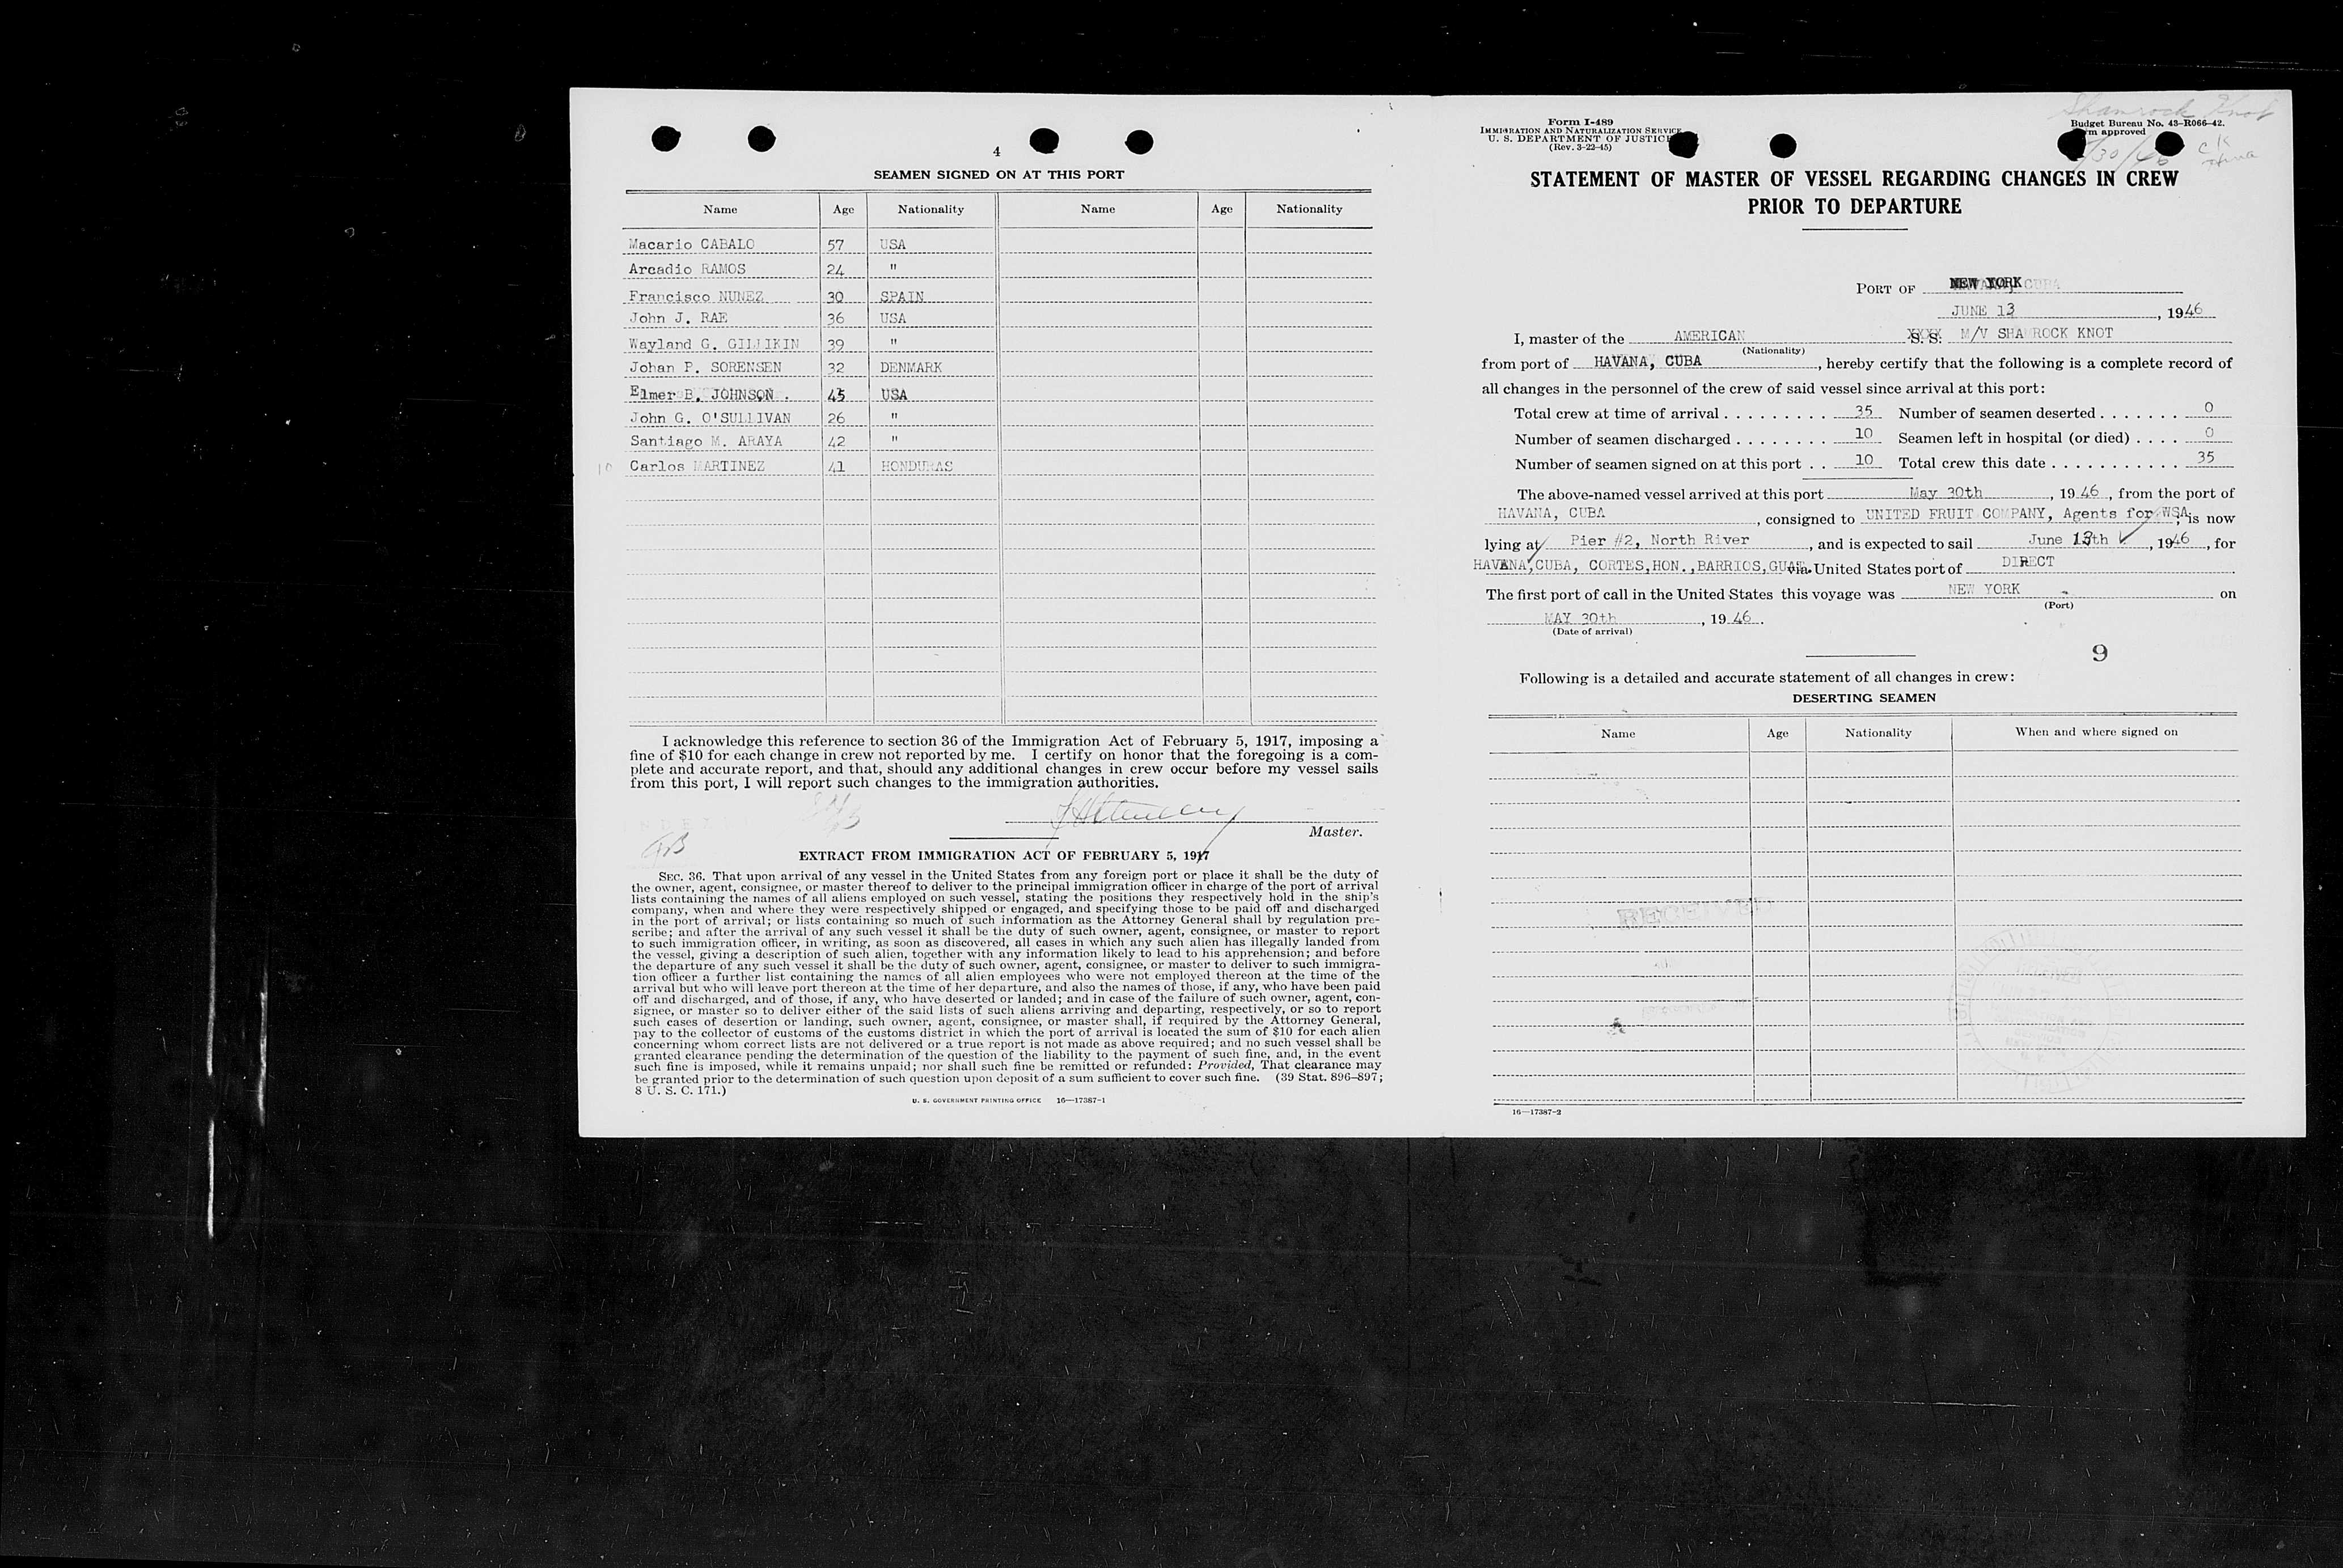 4
SEAMEN SIGNED ON AT THIS PORT
Name Age Nationality Name Age Nationality
Macario CABALO 57 USA
Arcadio RAMOS 24 "
Francisco NUNEZ 30 SPAIN
John J. RAE 36 USA
Wayland G. GILLIKIN 39 "
Johan P. SORENSEN 32 DENMARK
Elmer B. JOHNSON . 45 USA
John G. O'SULLIVAN 26 "
Santiago M. ARAYA 42 "
10 Carlos MARTINEZ 41 HONDURAS
I acknowledge this reference to section 36 of the Immigration Act of February 5, 1917, imposing a
fine of $10 for each change in crew not reported by me. I certify on honor that the foregoing is a com-
plete and accurate report, and that, should any additional changes in crew occur before my vessel sails
from this port, I will report such changes to the immigration authorities.
Master.
EXTRACT FROM IMMIGRATION ACT OF FEBRUARY 5, 1917
SEC. 36. That upon arrival of any vessel in the United States from any foreign port or place it shall be the duty of
the owner, agent, consignee, or master thereof to deliver to the principal immigration officer in charge of the port of arrival
lists containing the names of all aliens employed on such vessel, stating the positions they respectively hold in the ship's
company, when and where they were respectively shipped or engaged, and specifying those to be paid off and discharged
in the port of arrival; or lists containing so much of such information as the Attorney General shall by regulation pre-
scribe; and after the arrival of any such vessel it shall be the duty of such owner, agent, consignee, or master to report
to such immigration officer, in writing, as soon as discovered, all cases in which any such alien has illegally landed from
the vessel, giving a description of such alien, together with any information likely to lead to his apprehension; and before
the departure of any such vessel it shall be the duty of such owner, agent, consignee, or master to deliver to such immigra-
tion officer a further list containing the names of all alien employees who were not employed thereon at the time of the
arrival but who will leave port thereon at the time of her departure, and also the names of those, if any, who have been paid
off and discharged, and of those, if any, who have deserted or landed; and in case of the failure of such owner, agent, con-
signee, or master so to deliver either of the said lists of such aliens arriving and departing, respectively, or so to report
such cases of desertion or landing, such owner, agent, consignee, or master shall, if required by the Attorney General,
pay to the collector of customs of the customs district in which the port of arrival is located the sum of $10 for each alien
concerning whom correct lists are not delivered or a true report is not made as above required; and no such vessel shall be
granted clearance pending the determination of the question of the liability to the payment of such fine, and, in the event
such fine is imposed, while it remains unpaid; nor shall such fine be remitted or refunded: Provided, That clearance may
be granted prior to the determination of such question upon deposit of a sum sufficient to cover such fine. (39 Stat. 896–897;
8 U. S. C. 171.)
U. S. GOVERNMENT PRINTING OFFICE 16—17387-1
Shamrock Knot
Form I-489
IMMIGRATION AND NATURALIZATION SERVICE
U. S. DEPARTMENT OF JUSTICE
(Rev. 3-22-45)
Budget Bureau No. 43-R066-42.
approved
STATEMENT OF MASTER OF VESSEL REGARDING CHANGES IN CREW
PRIOR TO DEPARTURE
PORT OF NEW YORK
JUNE 13, 1946
I, master of the AMERICAN S. S. M/V SHAMROCK KNOT
(Nationality)
from port of HAVANA, CUBA, hereby certify that the following is a complete record of
all changes in the personnel of the crew of said vessel since arrival at this port:
Total crew at time of arrival . . . . . . . . . 35 Number of seamen deserted . . . . . . . 0
Number of seamen discharged . . . . . . . . 10 Seamen left in hospital (or died) . . . . 0
Number of seamen signed on at this port . . 10 Total crew this date . . . . . . . . . . . 35
The above-named vessel arrived at this port May 30th, 1946, from the port of
HAVANA, CUBA, consigned to UNITED FRUIT COMPANY, Agents for WSA; is now
lying at Pier #2, North River, and is expected to sail June 13th, 1946, for
HAVANA,CUBA, CORTES,HON.,BARRIOS,GUAT. via United States port of DIRECT
The first port of call in the United States this voyage was NEW YORK on
(Port)
MAY 30th, 1946.
(Date of arrival)
9
Following is a detailed and accurate statement of all changes in crew:
DESERTING SEAMEN
Name Age Nationality When and where signed on
RECEIVED
16—17387-2